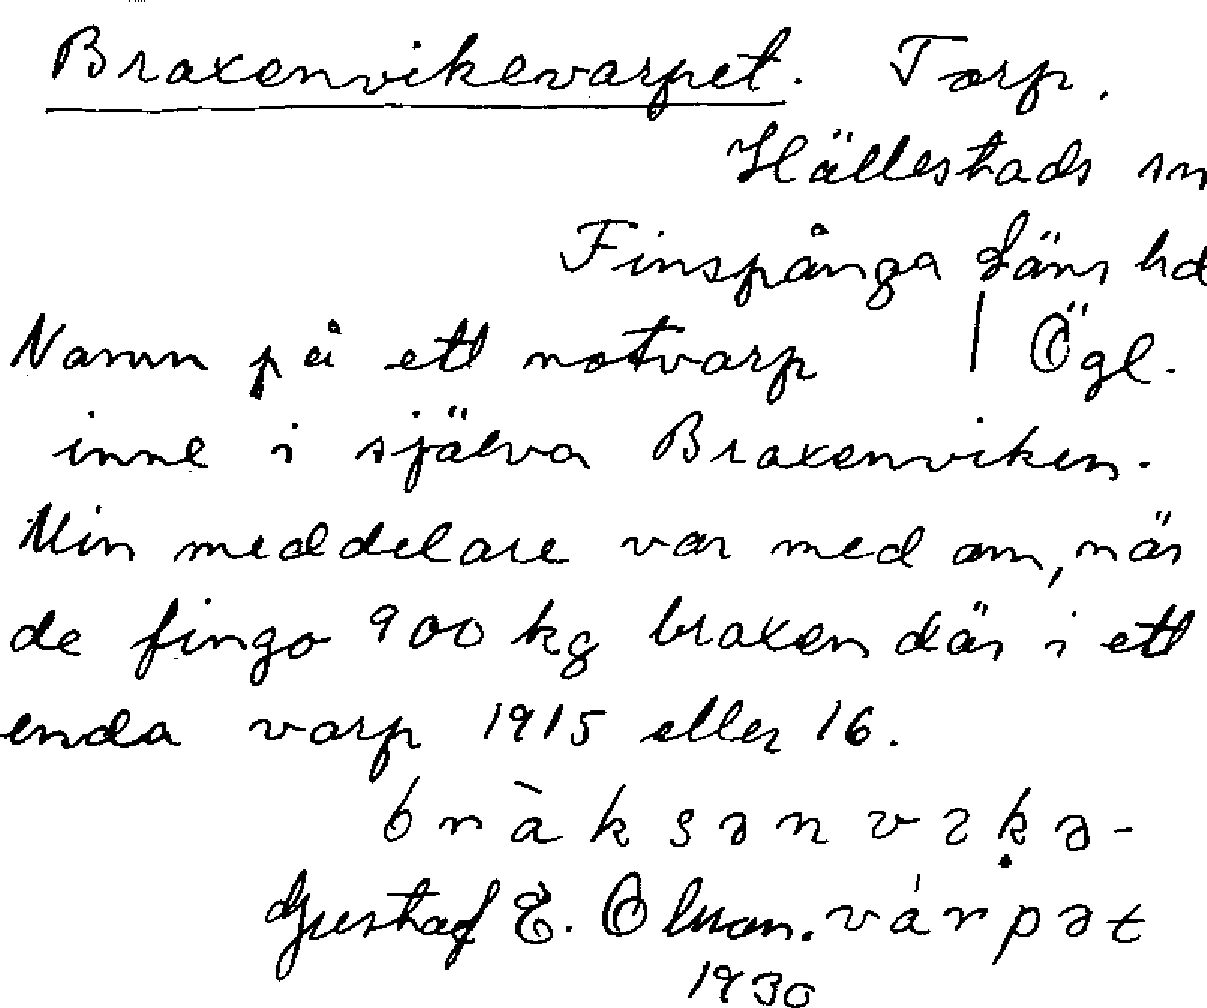 Braxenvikevarpet. Torp.
Hällestads sn
Finspånga Läns hd
Namn på ett notvarp | Ögl.
inne i själva Braxenviken.
Min meddelare var med om, när
de fingo 900 kg braxen där i ett
enda varp 1915 eller 16.
bràksənvikə-
Gustaf E. Olson. várpət
1930